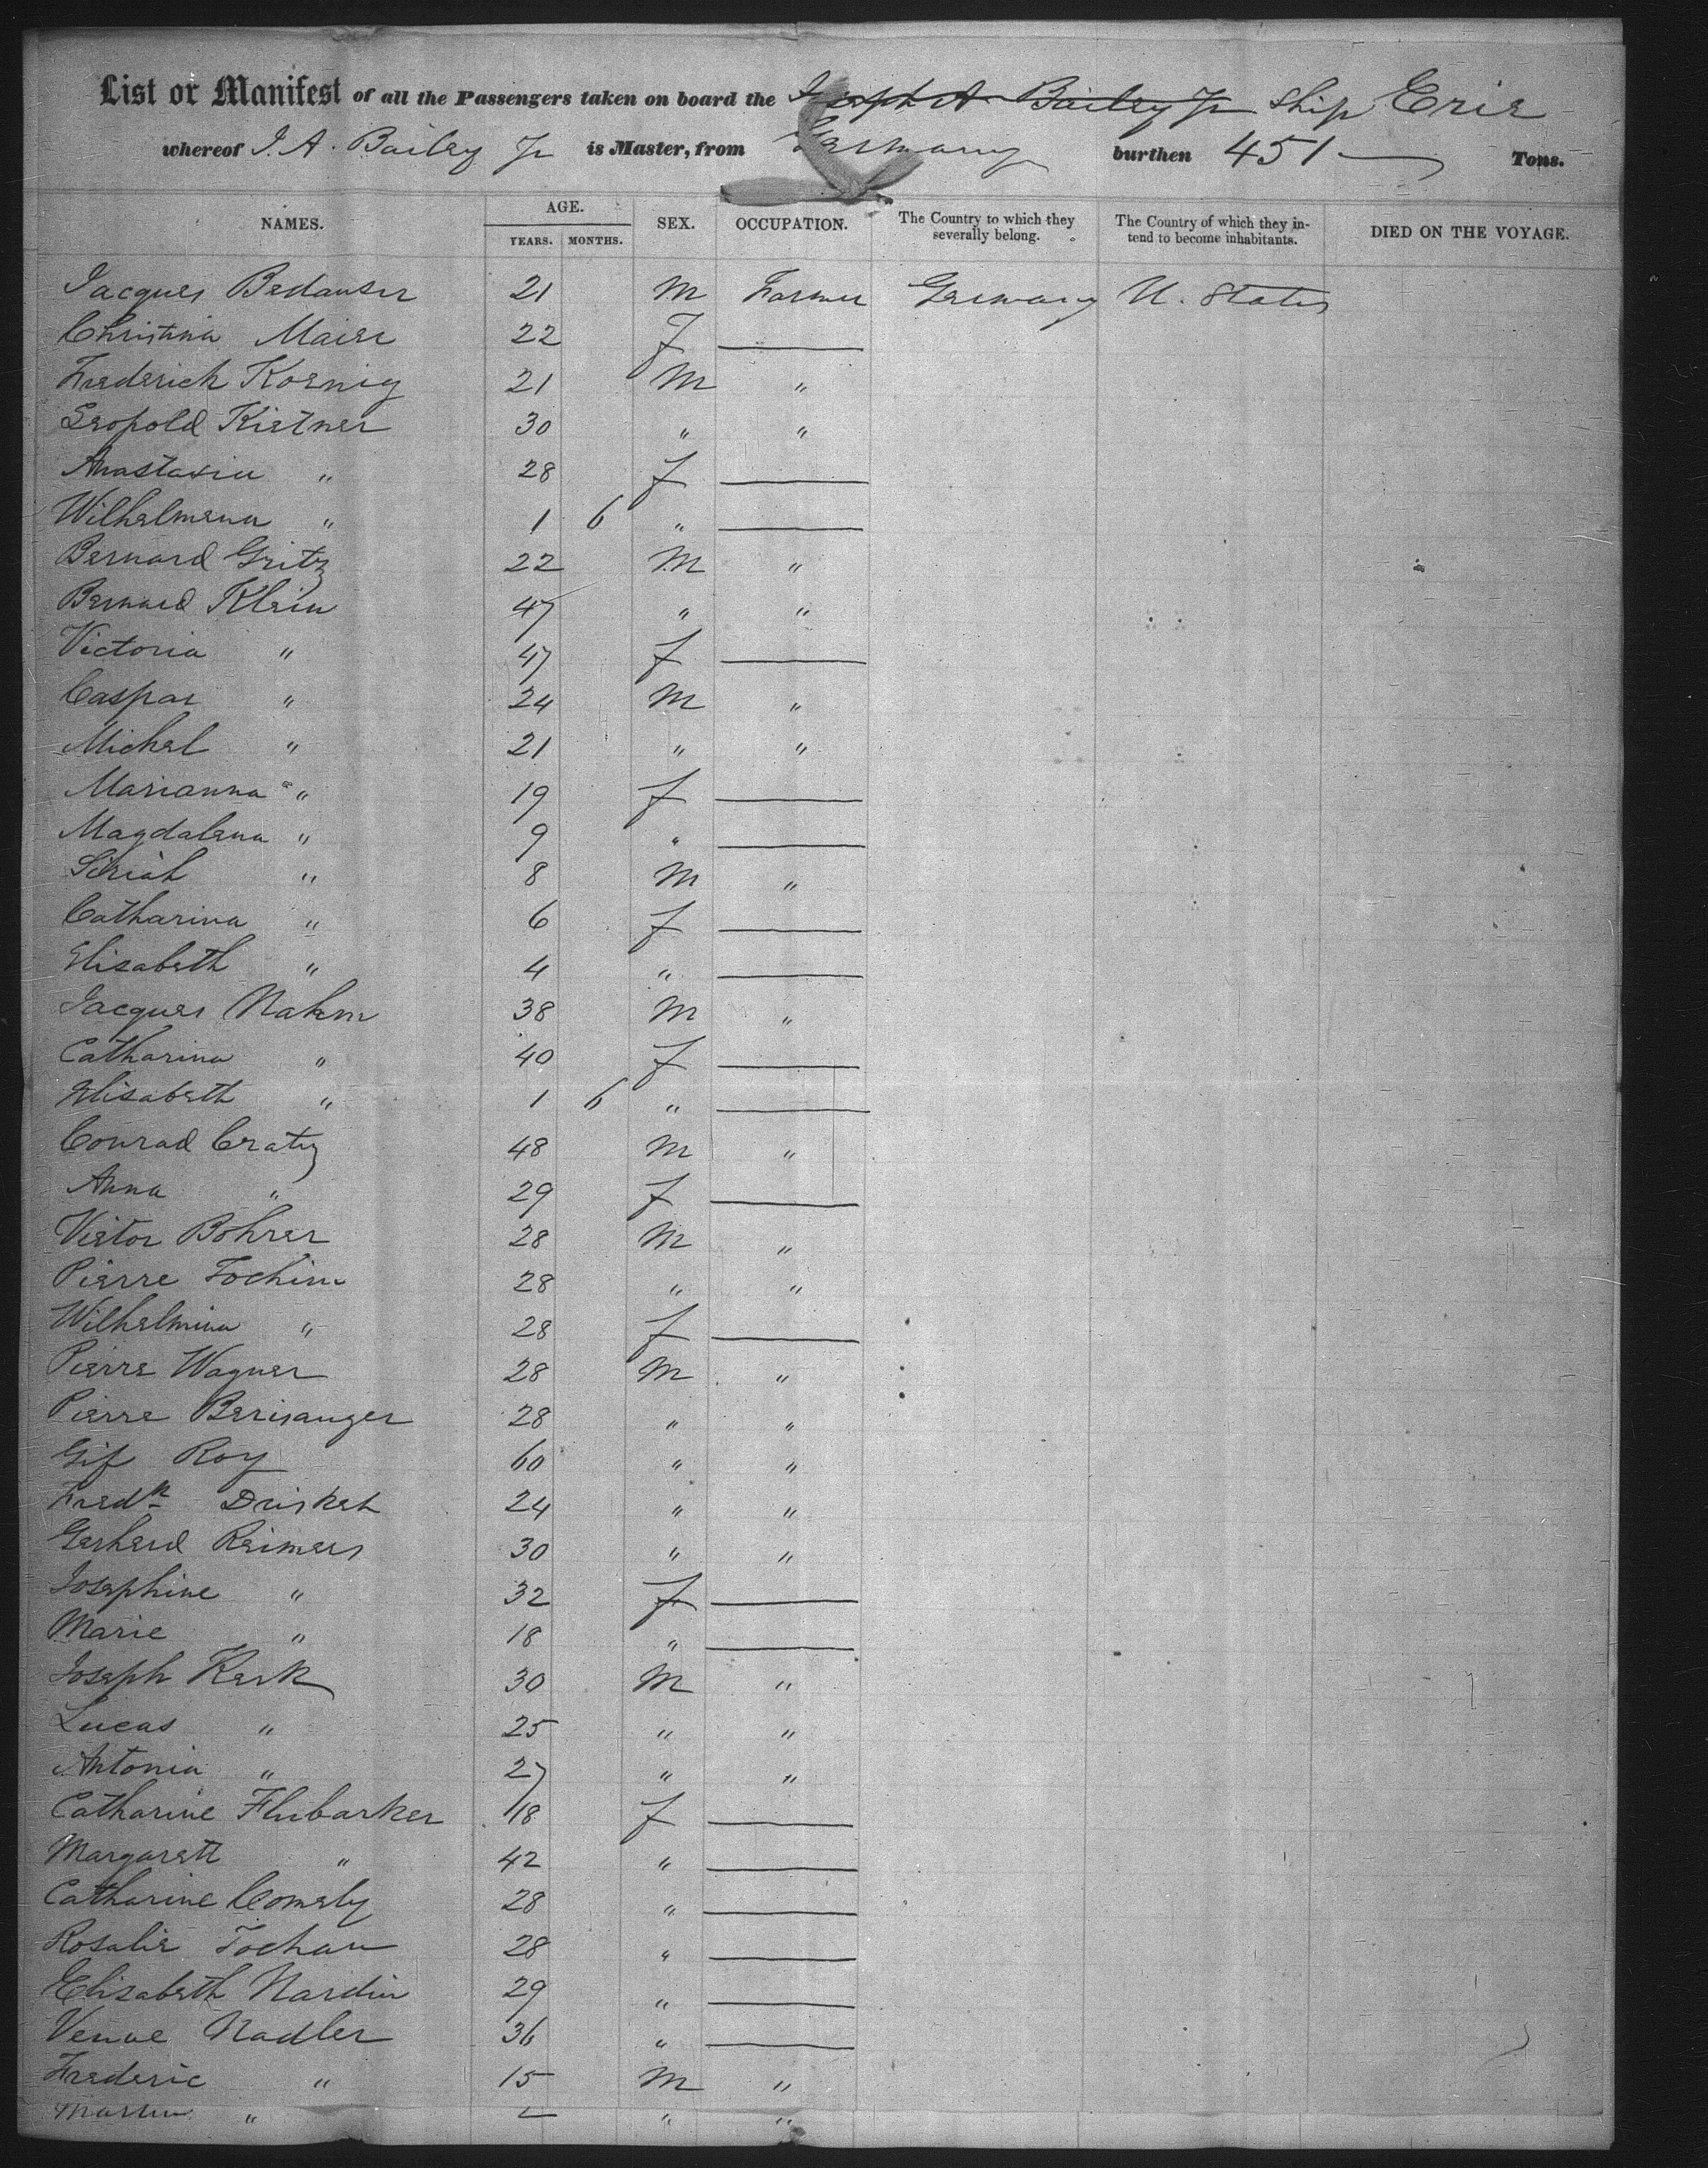 List or Manifest of all the Passengers taken on board the Joseph A. Bailey Jr Ship Erie
whereof J. A. Bailey Jr is Master, from Germany burthen 451 Tons.
NAMES. AGE. YEARS. MONTHS. SEX. OCCUPATION. The Country to which they severally belong. The Country of which they intend to become inhabitants. DIED ON THE VOYAGE.
Jacques 21 M Farmer Germany U. States
Christina Maier 22 F —
Frederick Koenig 21 M "
Leopold Kistner 30 " "
Anastasia " 28 f —
Wilhelmena " 1 6 " —
Bernard Gritz 22 M "
Bernard Klein 47 " "
Victoria " 47 f —
Caspar " 24 M "
Michel " 21 " "
Marianna " 19 f —
Magdalena " 9 " —
" 8 M "
Catharina " 6 f —
Elisabeth " 4 " —
Jacques Nahm 38 M "
Catharina " 40 f —
Elisabeth " 1 6 " —
Conrad Cratz 48 M "
Anna " 29 f —
Victor Bohrer 28 M "
Pierre Jochim 28 " "
Wilhelmina " 28 f —
Pierre Wagner 28 M "
Pierre Berisanger 28 " "
Roy 60 " "
Fredk 24 " "
Gerhard Reimers 30 " "
Josephine " 32 f —
Marie " 18 " —
Joseph Kerk 30 M "
Lucas " 25 " "
Antonia " 27 " "
Catharine Flubarker 18 f —
Margarett " 42 " —
Catharine Comely 28 " —
Rosalie Jochan 28 " —
Elisabeth Nardin 29 " —
Nadler 36 " —
Frederic " 15 M "
Martin " " "